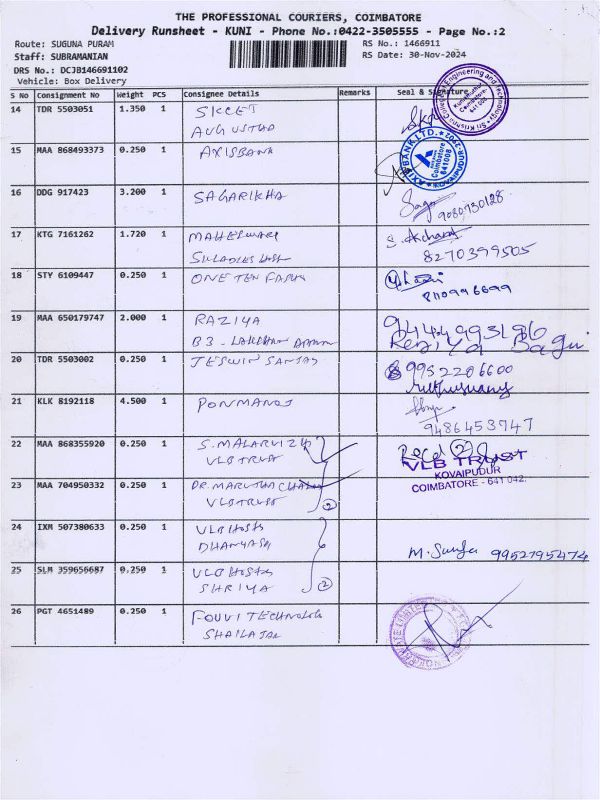 THE PROFESSIONAL COURIERS, COIMBATORE
Delivery Runsheet - KUNI - Phone No.:0422-3505555 - Page No.:2
Route: SUGUNA PURAM
RS No.: 1466911
Staff: SUBRAMANIAN
RS Date: 30-Nov-2024
DRS No.: DCJB146691102
Vehicle: Box Delivery
S No Consignment No Weight PCS Consignee Details Remarks Seal & Signature
14 TDR 5503051 1.350 1 SKCET
15 MAA 868493373 0.250 1 AXISBANK
AXIS BANK LTD.
KOVAIPUDUR
Coimbatore
641008
16 DDG 917423 3.200 1 SAGARIKHA
9080730128
17 KTG 7161262 1.720 1 MAHESWARI
8270399505
18 STY 6109447 0.250 1 ONE TEN FARM
8110996699
19 MAA 650179747 2.000 1 RAZIYA
B3 -
20 TDR 5503002 0.250 1 JESWIN SANJAY
9952206600
21 KLK 8192118 4.500 1 PONMANOJ
9486453747
22 MAA 868355920 0.250 1 S. MALARVIZHI
VLB TRUST
VLB TRUST
KOVAIPUDUR
COIMBATORE - 641 042.
23 MAA 704950332 0.250 1 DR. MARUTHACHALAM
VLB TRUST
2
24 IXM 507380633 0.250 1 VLB HOSTS
DHANYASH
9952795474
25 SLM 359656687 0.250 1 VLB HOSTS
SHRIYA
2
26 PGT 4651489 0.250 1 FOUVI TECHNOLOGI